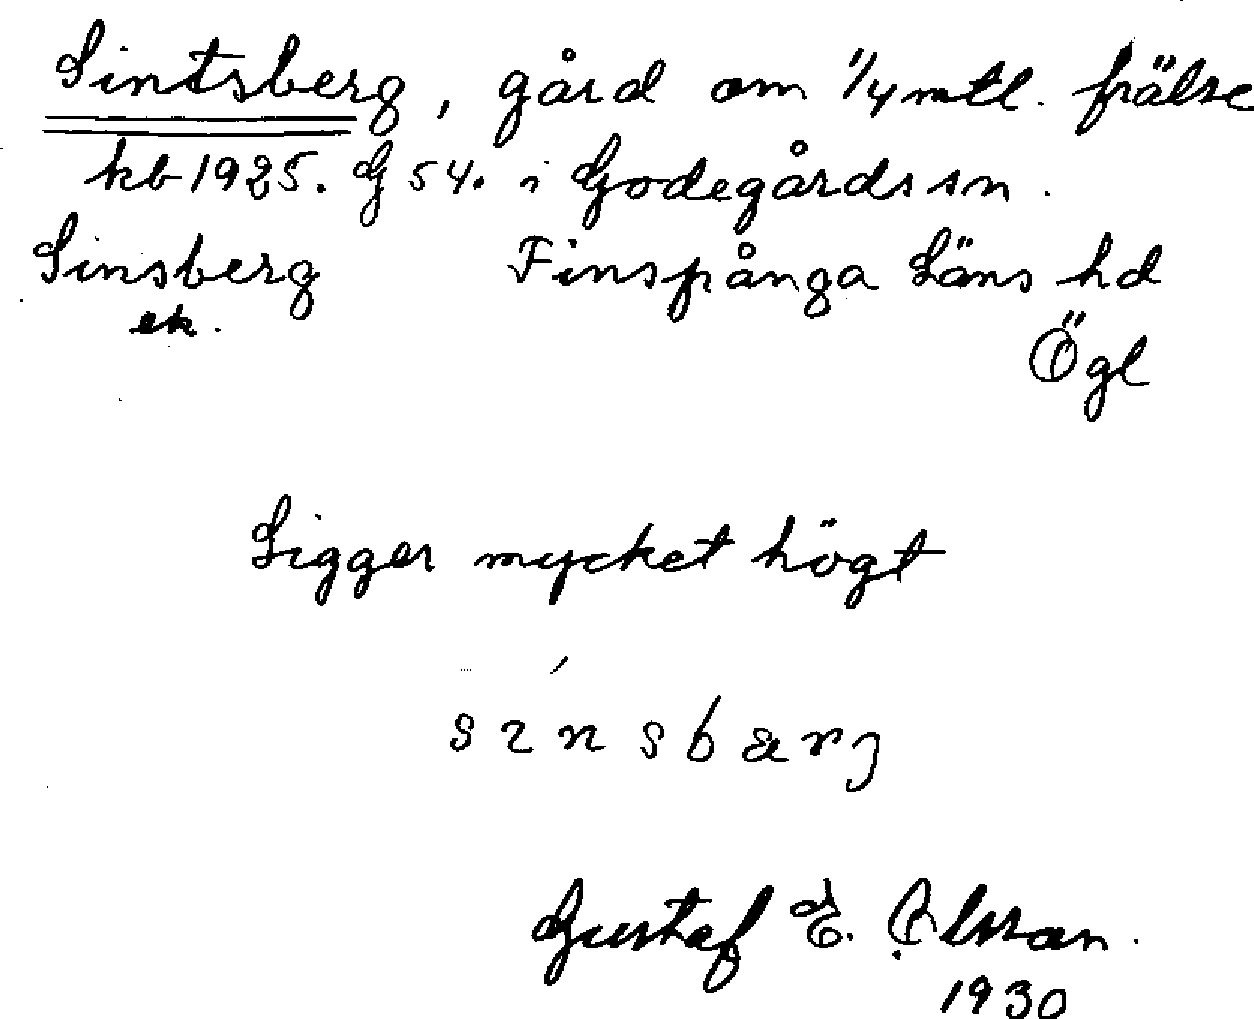 Sintsberg, gård om 1/4 mtl. frälse
kb 1925. G 54. i Godegårds sn.
Sinsberg Finspånga Läns hd
ek.
Ögl
Ligger mycket högt
sínsbærj
Gustaf E. Olsson.
1930